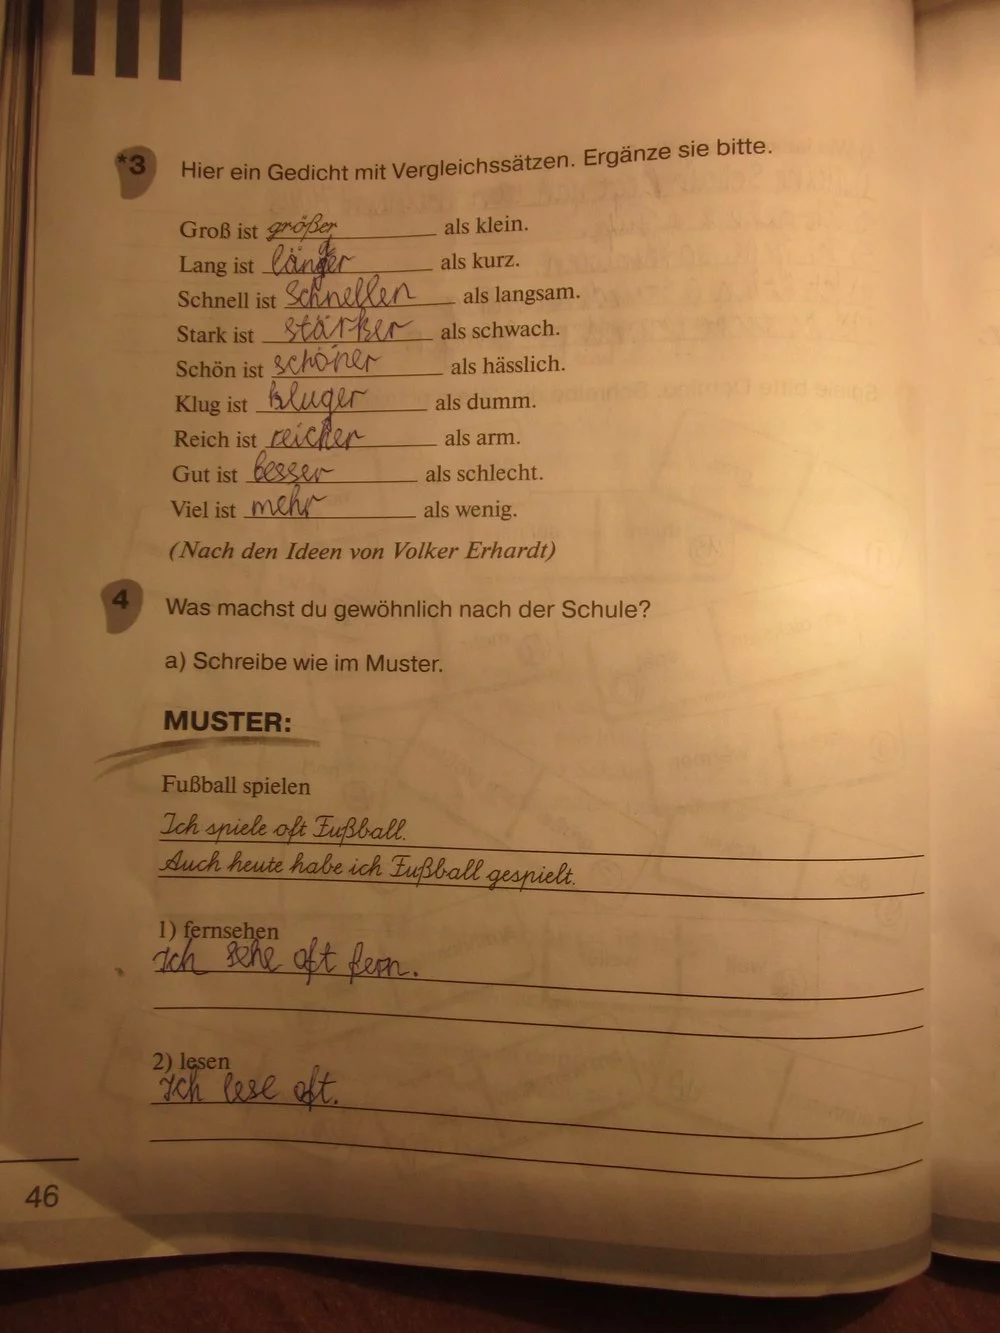 *3 Hier ein Gedicht mit Vergleichssätzen. Ergänze sie bitte.
Groß ist größer als klein.
Lang ist länger als kurz.
Schnell ist schnellen als langsam.
Stark ist stärker als schwach.
Schön ist schöner als hässlich.
Klug ist kluger als dumm.
Reich ist reicher als arm.
Gut ist besser als schlecht.
Viel ist mehr als wenig.
(Nach den Ideen von Volker Erhardt)
4 Was machst du gewöhnlich nach der Schule?
a) Schreibe wie im Muster.
MUSTER:
Fußball spielen
Ich spiele oft Fußball.
Auch heute habe ich Fußball gespielt.
1) fernsehen
Ich sehe oft fern.
2) lesen
Ich lese oft.
46